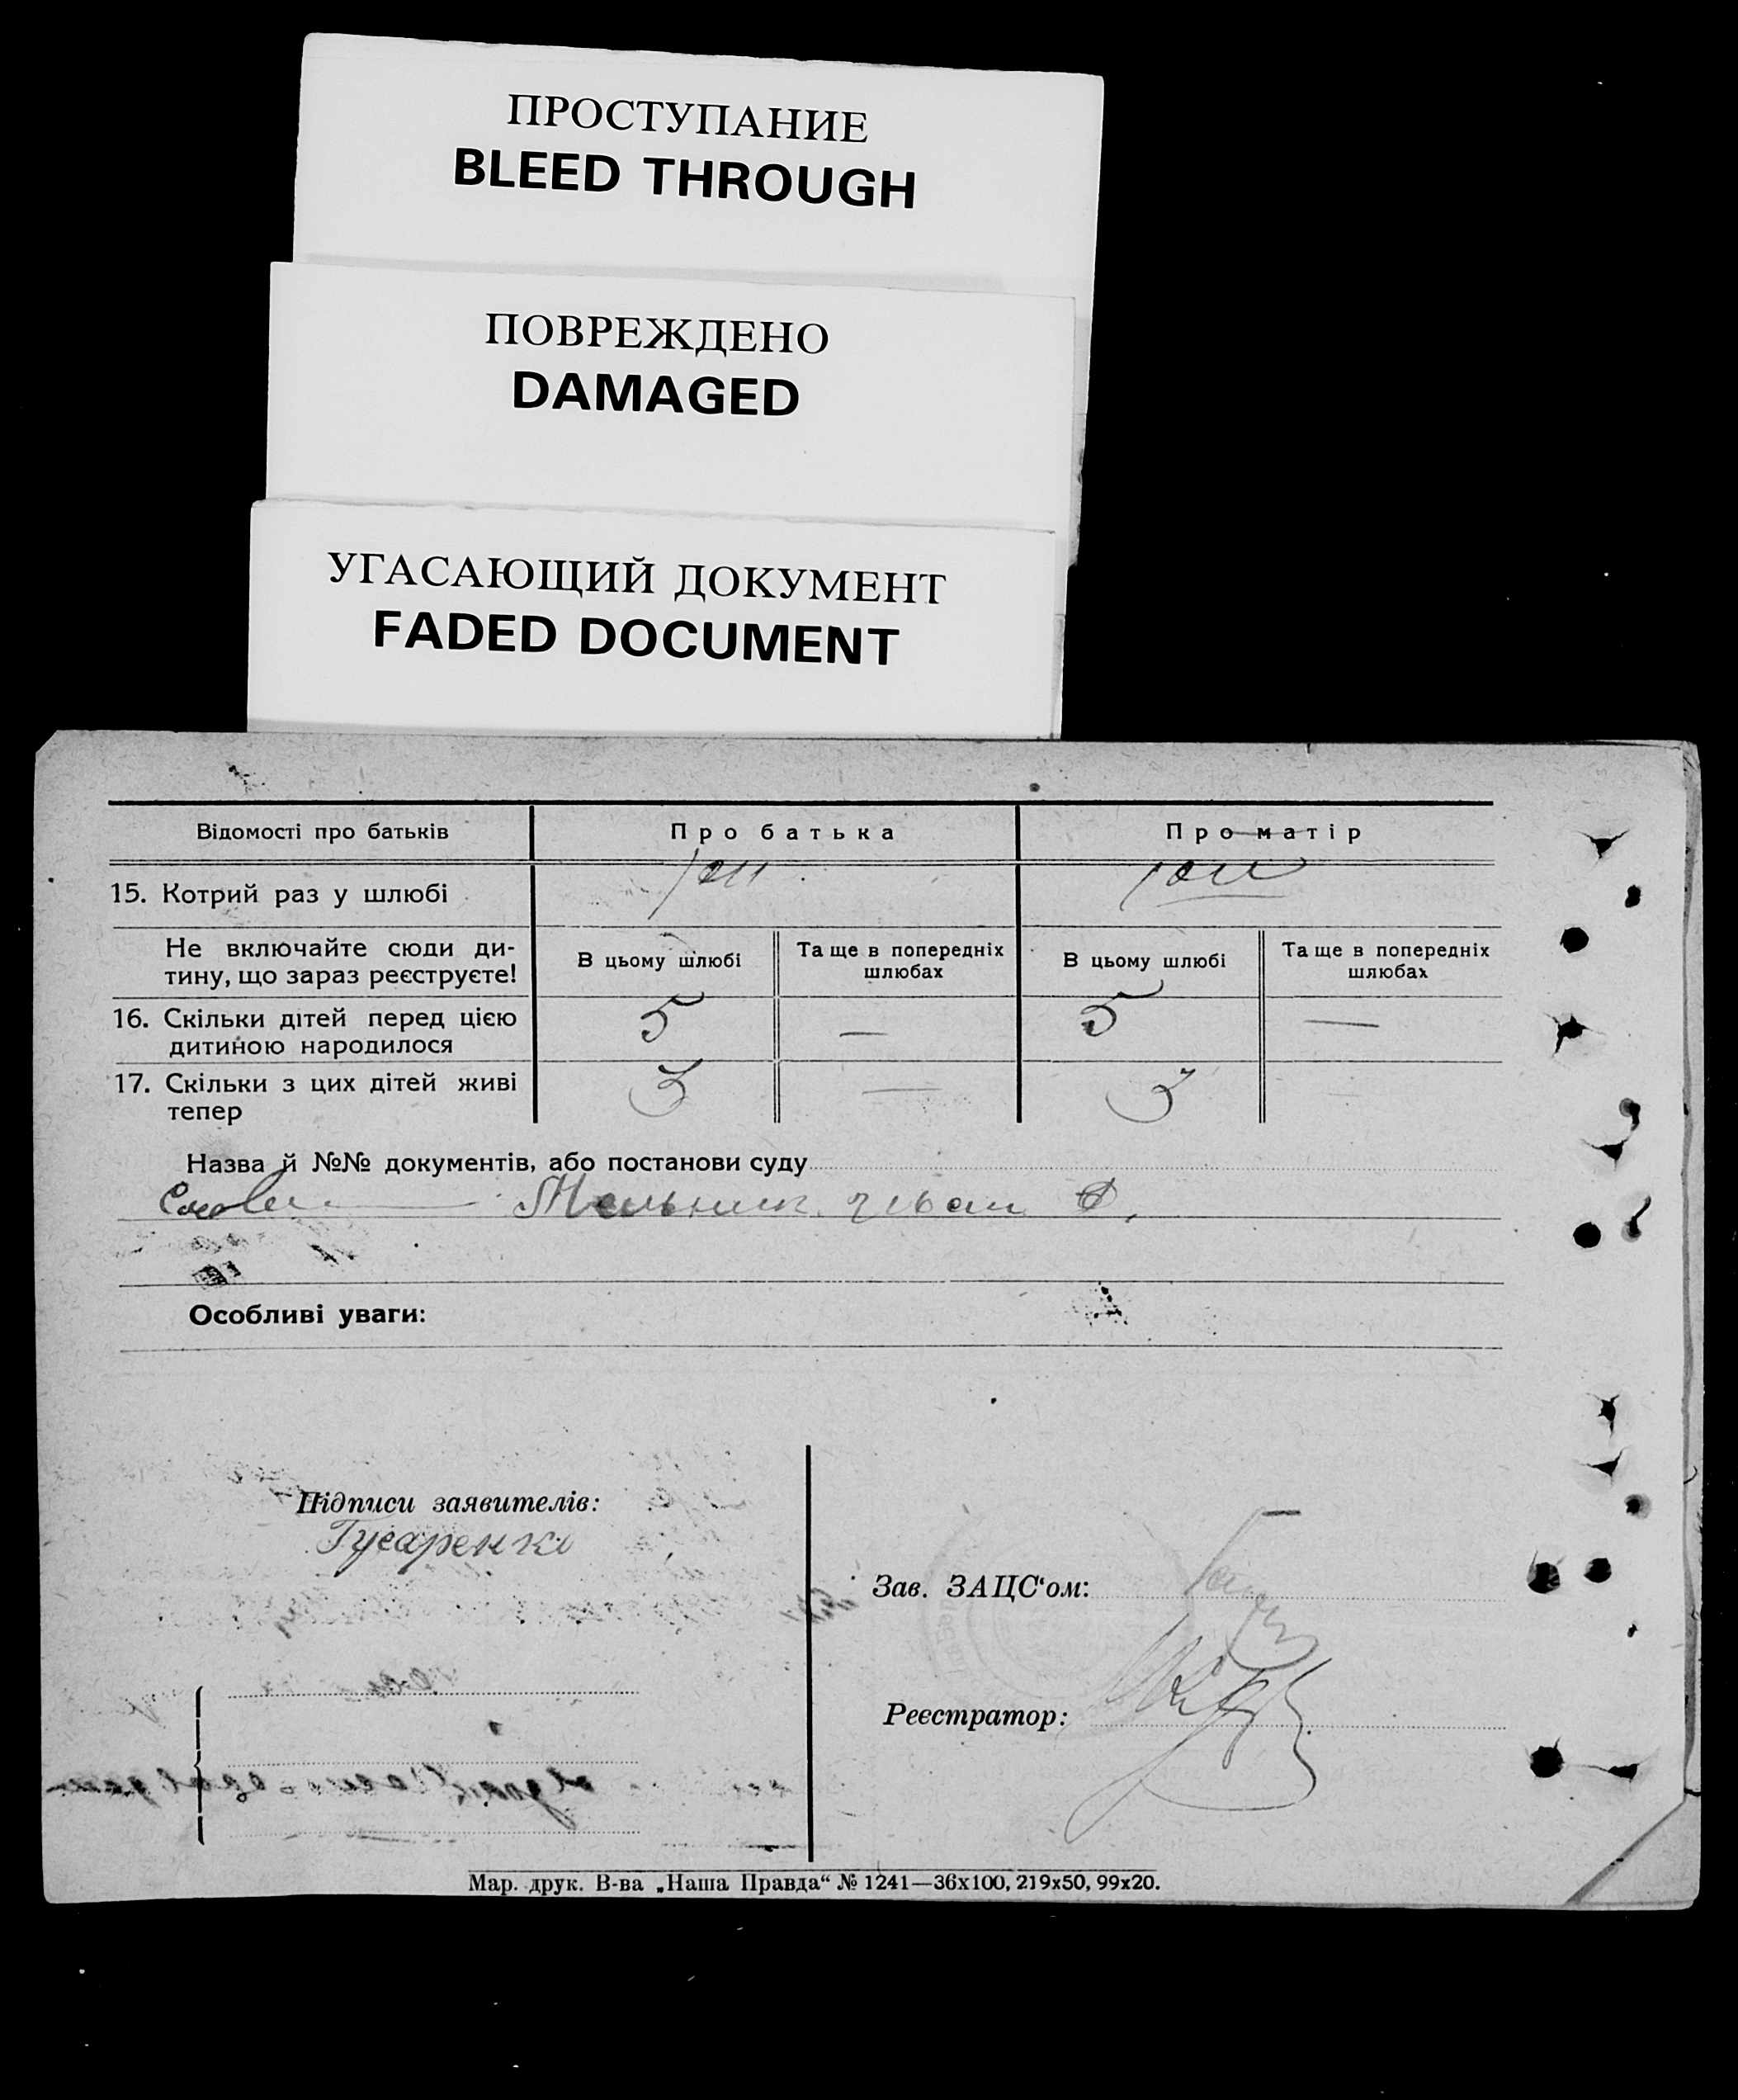 ПРОСТУПАНИЕ
BLEED THROUGH
ПОВРЕЖДЕНО
DAMAGED
УГАСАЮЩИЙ ДОКУМЕНТ
FADED DOCUMENT
Відомості про батьків Про батька Про матір
15. Котрий раз у шлюбі
Не включайте сюди ди-
тину, що зараз реєструєте!
В цьому шлюбі
Та ще в попередніх
шлюбах
В цьому шлюбі
Та ще в попередніх
шлюбах
16. Скільки дітей перед цією
дитиною народилося
5 — 5 —
17. Скільки з цих дітей живі
тепер
3 — 3
Назва й №№ документів, або постанови суду
Мельник
Особливі уваги:
Підписи заявителів:
Гусаренко
Зав. ЗАЦС‘ом:
Реєстратор:
Мар. друк. В-ва „Наша Правда“ № 1241—36х100, 219х50, 99х20.